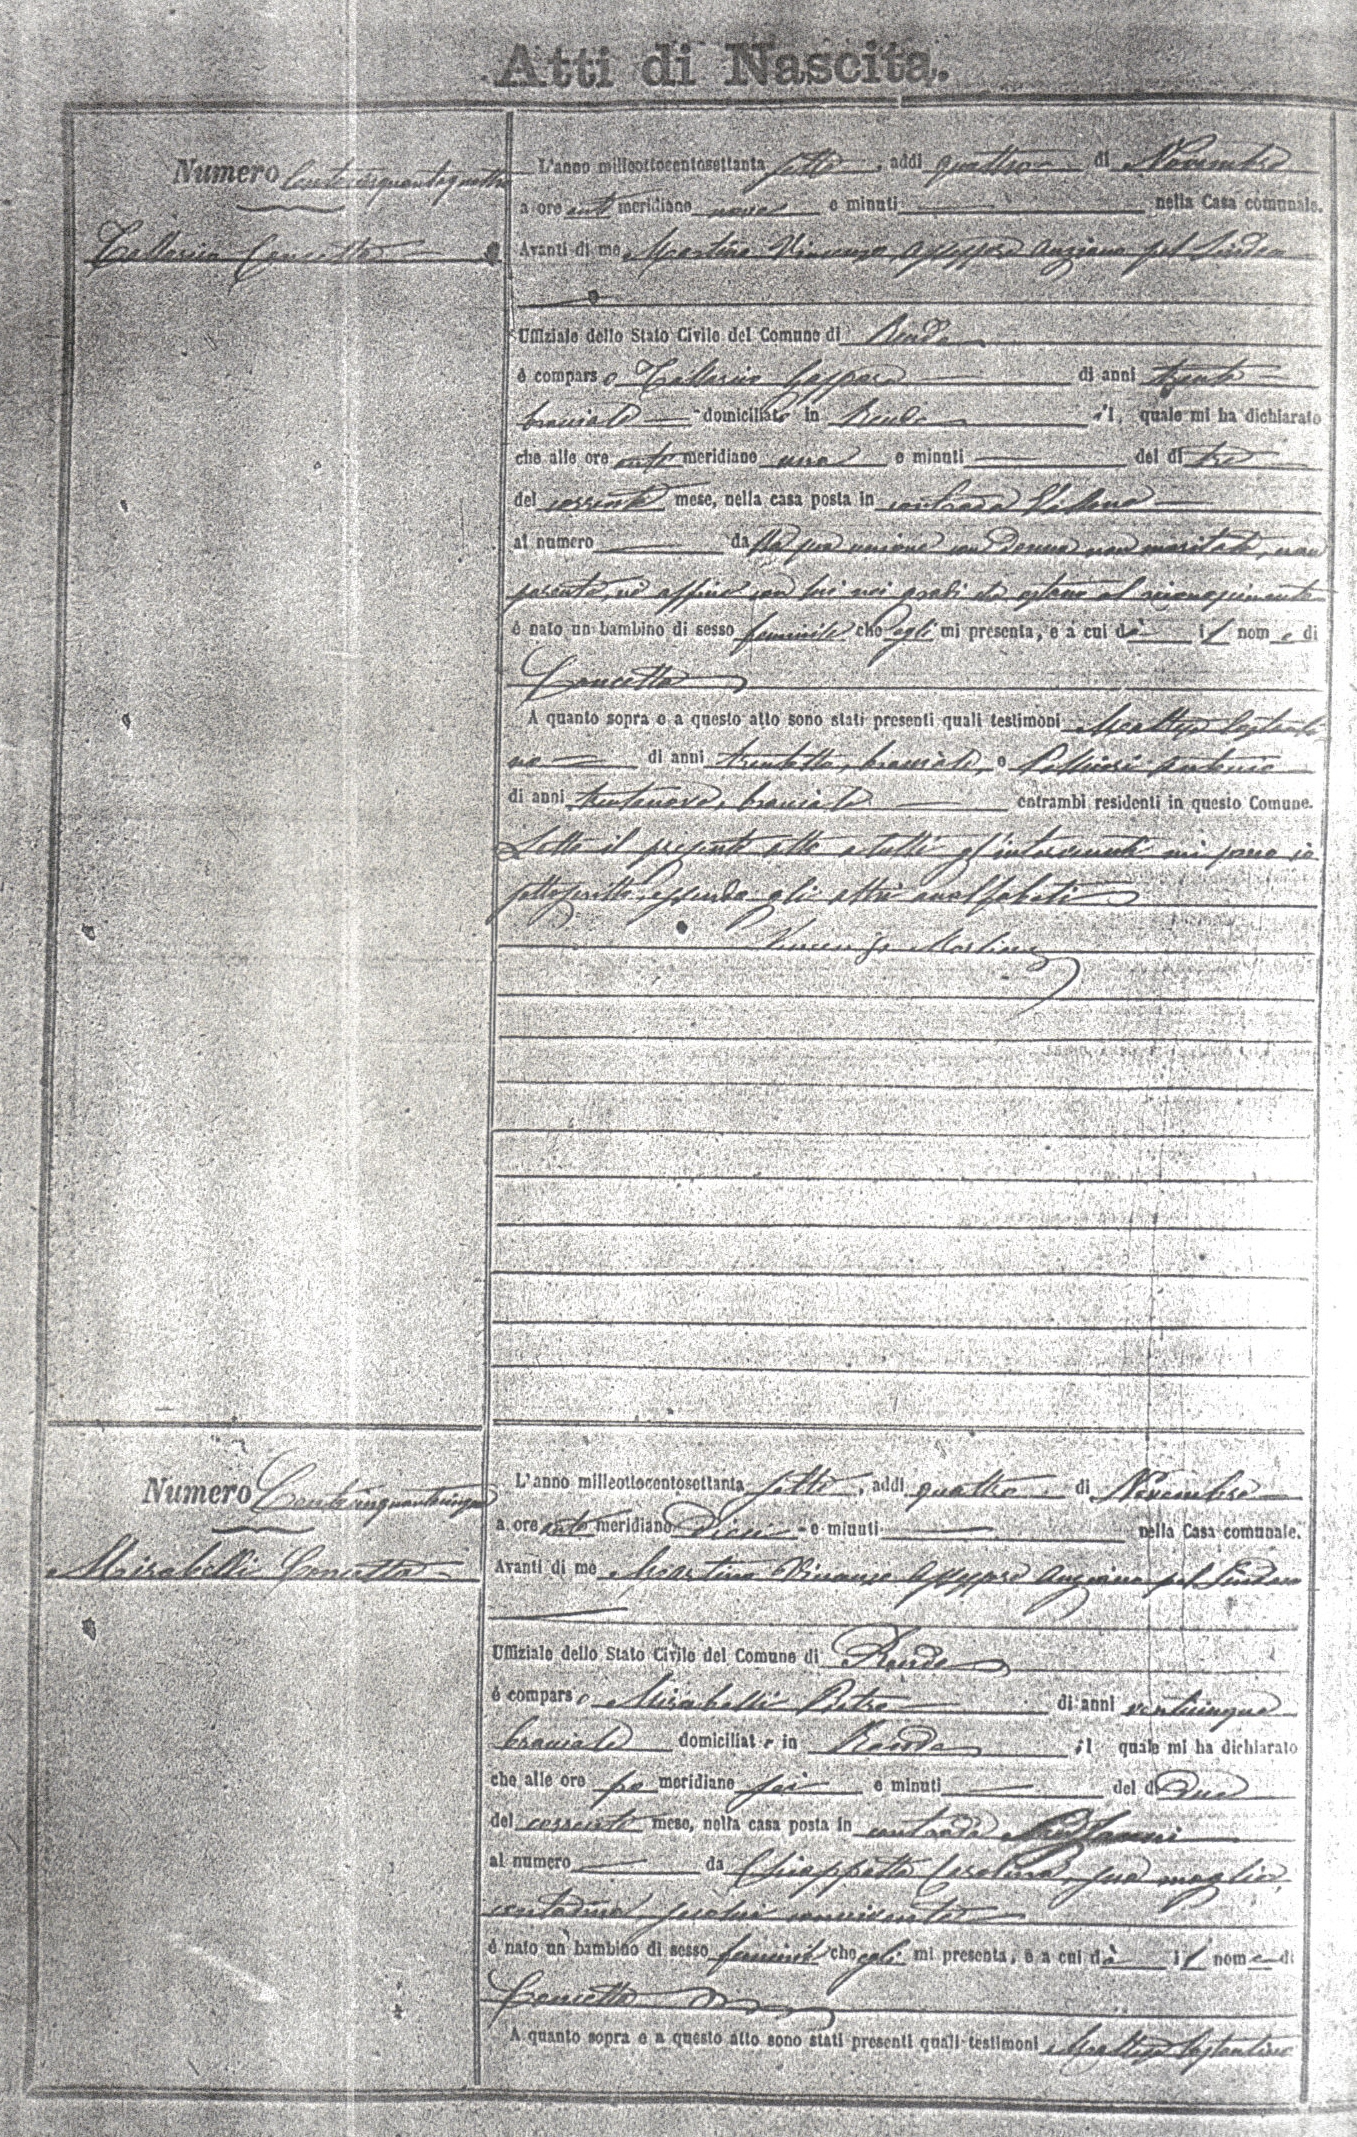 Atti di Nascita.
Numero Centocinquantaquattro
Tallarico Concetta
L'anno milleottocentosettanta sette, addì quattro di Novembre
a ore anti meridiane nove e minuti nella Casa comunale.
Avanti di me Martino Vincenzo Assessore Anziano pel Sindaco
Uffiziale dello Stato Civile del Comune di Rende
è comparso Tallarico Gaspare di anni trenta
bracciale domiciliato in Rende il quale mi ha dichiarato
che alle ore anti meridiane una e minuti del dì tre
del corrente mese, nella casa posta in contrada
al numero da sua unione con Donna non maritata, non
parente, nè affine con lui nei gradi che ostano al riconoscimento
è nato un bambino di sesso femminile che egli mi presenta, e a cui dà il nome di
Concetta
A quanto sopra e a questo atto sono stati presenti quali testimoni Costanti
no di anni trentotto, bracciale, e Antonio
di anni trentanove, bracciale entrambi residenti in questo Comune.
Letto il presente atto a tutti gl'intervenuti mi sono io
sottoscritto, essendo gli altri analfabeti
Vincenzo Martino
Numero Centocinquantacinque
Mirabelli Concetta
L'anno milleottocentosettanta sette, addì quattro di Novembre
a ore anti meridiane Dieci e minuti nella Casa comunale.
Avanti di me Martino Vincenzo Assessore Anziano pel Sindaco
Uffiziale dello Stato Civile del Comune di Rende
è comparso Mirabelli Pietro di anni venticinque
bracciale domiciliato in Rende il quale mi ha dichiarato
che alle ore po meridiane sei e minuti del dì Due
del corrente mese, nella casa posta in contrada
al numero da Chiappetta Carolina, sua moglie,
contadina seco lui convivente
è nato un bambino di sesso femminile che egli mi presenta, e a cui dà il nome di
Concetta
A quanto sopra e a questo atto sono stati presenti quali testimoni Costantino